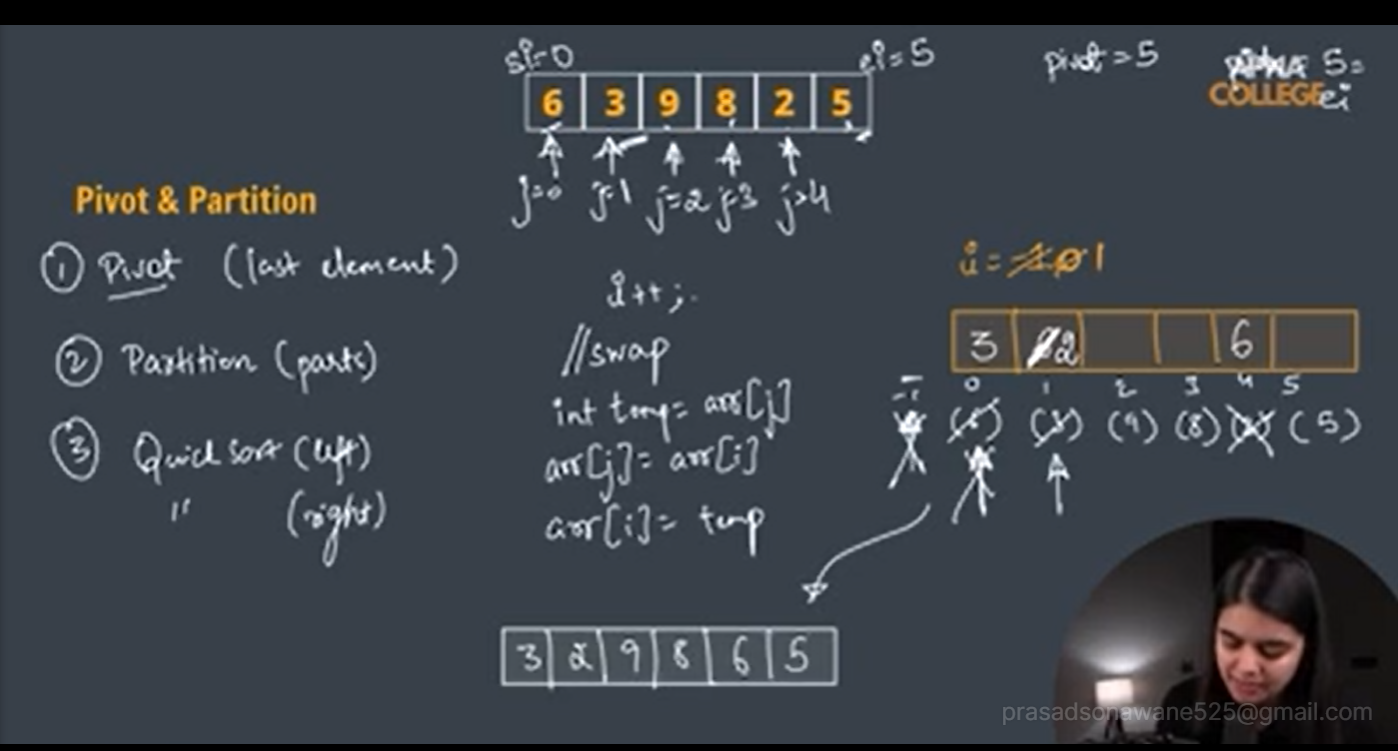 si=0
ei=5
pivot=5
5=
6 3 9 8 2 5
COLLEGE ei
j=0 j=1 j=2 j=3 j=4
Pivot & Partition
① Pivot (last element)
② Partition (parts)
③ Quicksort (left)
" (right)
i++;
//swap
int temp= arr[j]
arr[j]= arr[i]
arr[i]= temp
i = -1 0 1
3 2 6
-1 0 1 2 3 4 5
(9) (8) (5)
3 2 9 8 6 5
prasadsonawane525@gmail.com